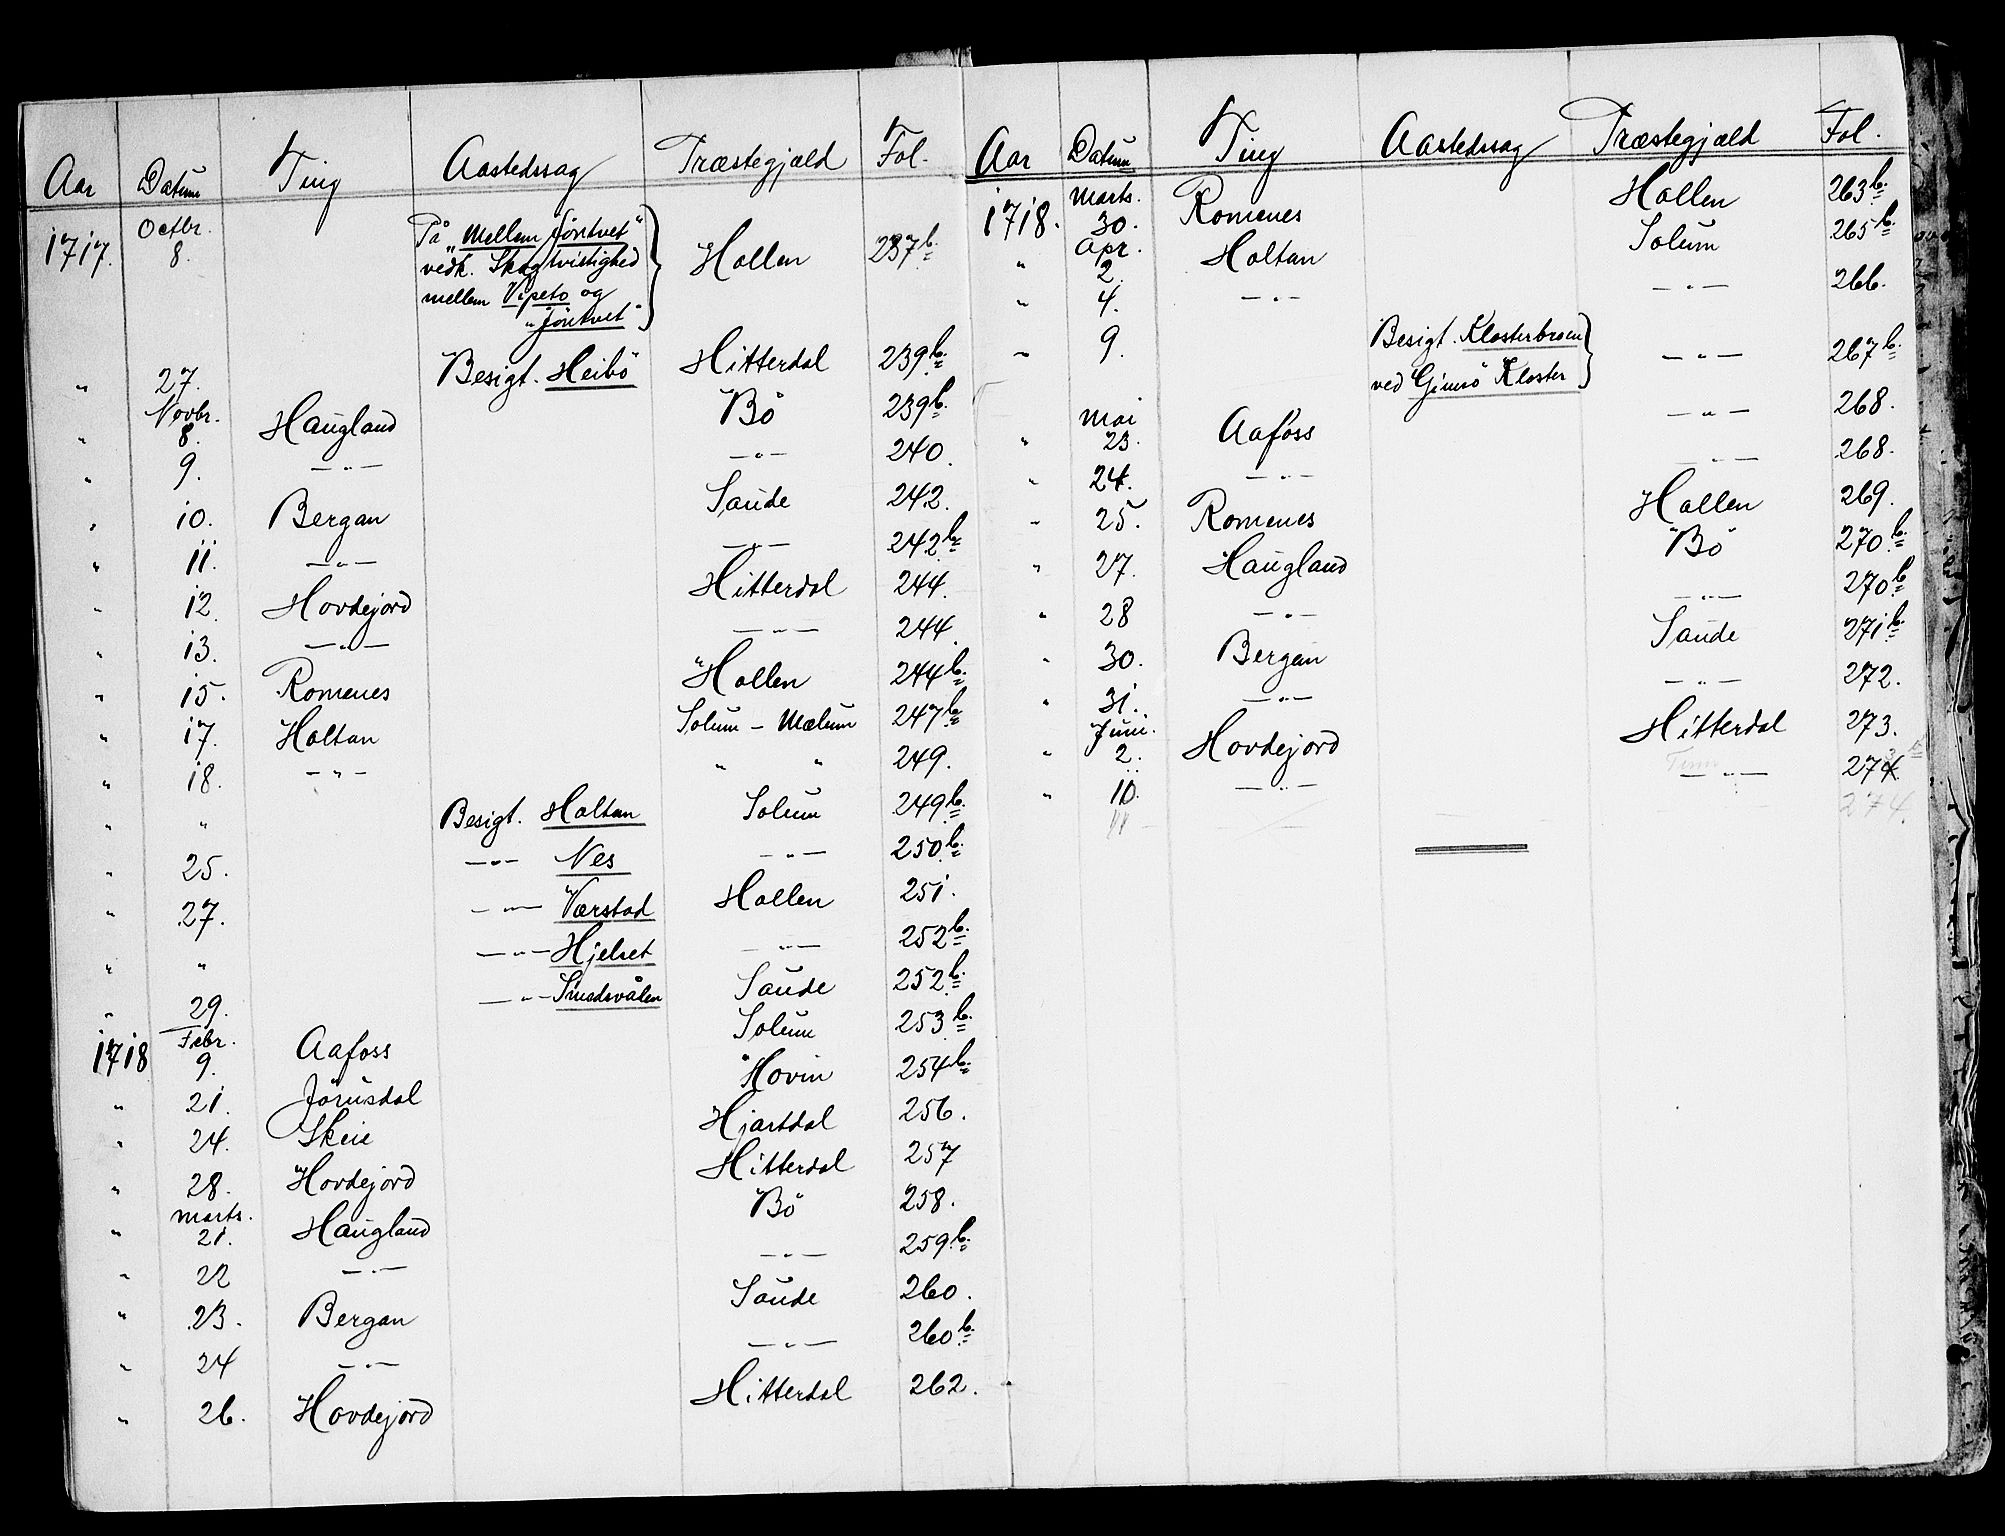 Aar Datum Ting Aastedssag Præstegjæld Fol.
Octbr.
1717. 8. På „Mellem Jöntvet" Hollen 237b.
vedk. Skogtvistighed
mellem Vipeto og
„Jöntvet"
" 27. Besigt. Heibö Hitterdal 239b.
Novbr.
" 8. Haugland Bö 239b.
" 9. —"— —"— 240.
" 10. Bergan Saude 242.
" 11. —"— —"— 242b
" 12. Hovdejord Hitterdal 244.
" 13. —"— —"— 244.
" 15. Romenes Hollen 244b.
" 17. Holtan Solum - Mælum 247b
" 18. —"— " " 249.
" " Besigt. Holtan Solum 249b.
" 25. —"— Nes —"— 250b.
" 27. —"— Værstad Hollen 251.
" " —"— Hjelset —"— 252b.
" 29. —"— Smedsvålen Saude 252b.
Febr.
1718 9. Aafoss Solum 253b.
" 21. Jörusdal Hovin 254b.
" 24. Skeie Hjartdal 256.
" 28. Hovdejord Hitterdal 257
Marts.
" 21. Haugland Bö 258.
" 22 —"— —"— 259b.
" 23. Bergan Saude 260.
" 24 —"— —"— 260b.
" 26. Hovdejord Hitterdal 262.
Aar Datum Ting Aastedssag Præstegjæld Fol.
Marts.
1718. 30. Romenes Hollen 263b.
Apr.
" 2. Holtan Solum 265b.
" 4. —"— —"— 266.
" 9. Besigt. Klosterbroen —"— 267b.
ved Gimsö Kloster
Mai
" 23. Aafoss —"— 268.
" 24. —"— —"— 268.
" 25. Romenes Hollen 269.
" 27. Haugland Bö 270b.
" 28 —"— —"— 270b
" 30. Bergan Saude 271b.
" 31. —"— —"— 272.
Juni.
" 2. Hovdejord Hitterdal 273.
" 10. —"— Tinn —"— 274
11 274.